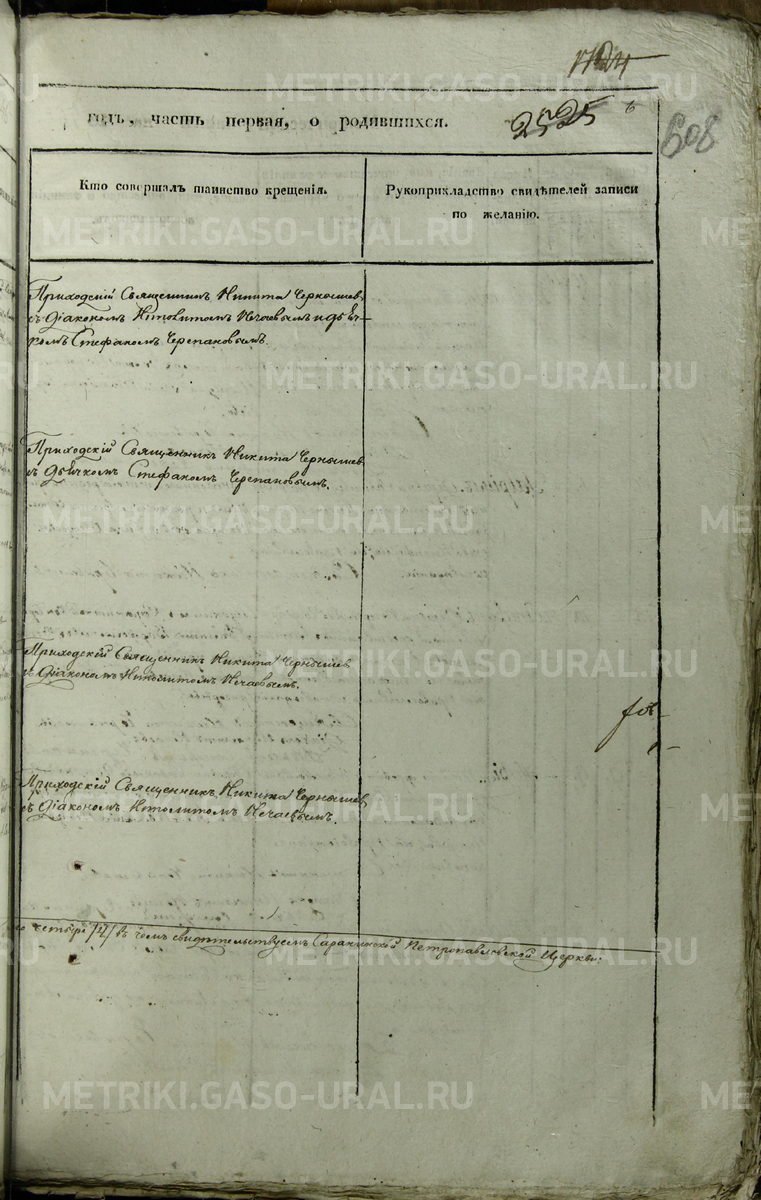 1724
годъ, часть первая, о родившихся.
2525
608
Кто совершалъ таинство крещенія.
Рукоприкладство свидѣтелей записи
по желанію.
Приходскій Священникъ Никита Чернышев
съ Діакономъ Ипполитомъ Нечаевымъ и дьяч-
комъ Стефаномъ Черепановымъ.
Приходскій Священникъ Никита Чернышев
съ дьячкомъ Стефаномъ Черепановымъ.
Приходскій Священникъ Никита Чернышев
съ Діакономъ Ипполитомъ Нечаевымъ.
Приходскій Священникъ Никита Чернышев
съ Діакономъ Ипполитомъ Нечаевымъ.
четыре /4/ въ чемъ свидѣтельствуемъ Петропавловской Церкви:
METRIKI.GASO-URAL.RU